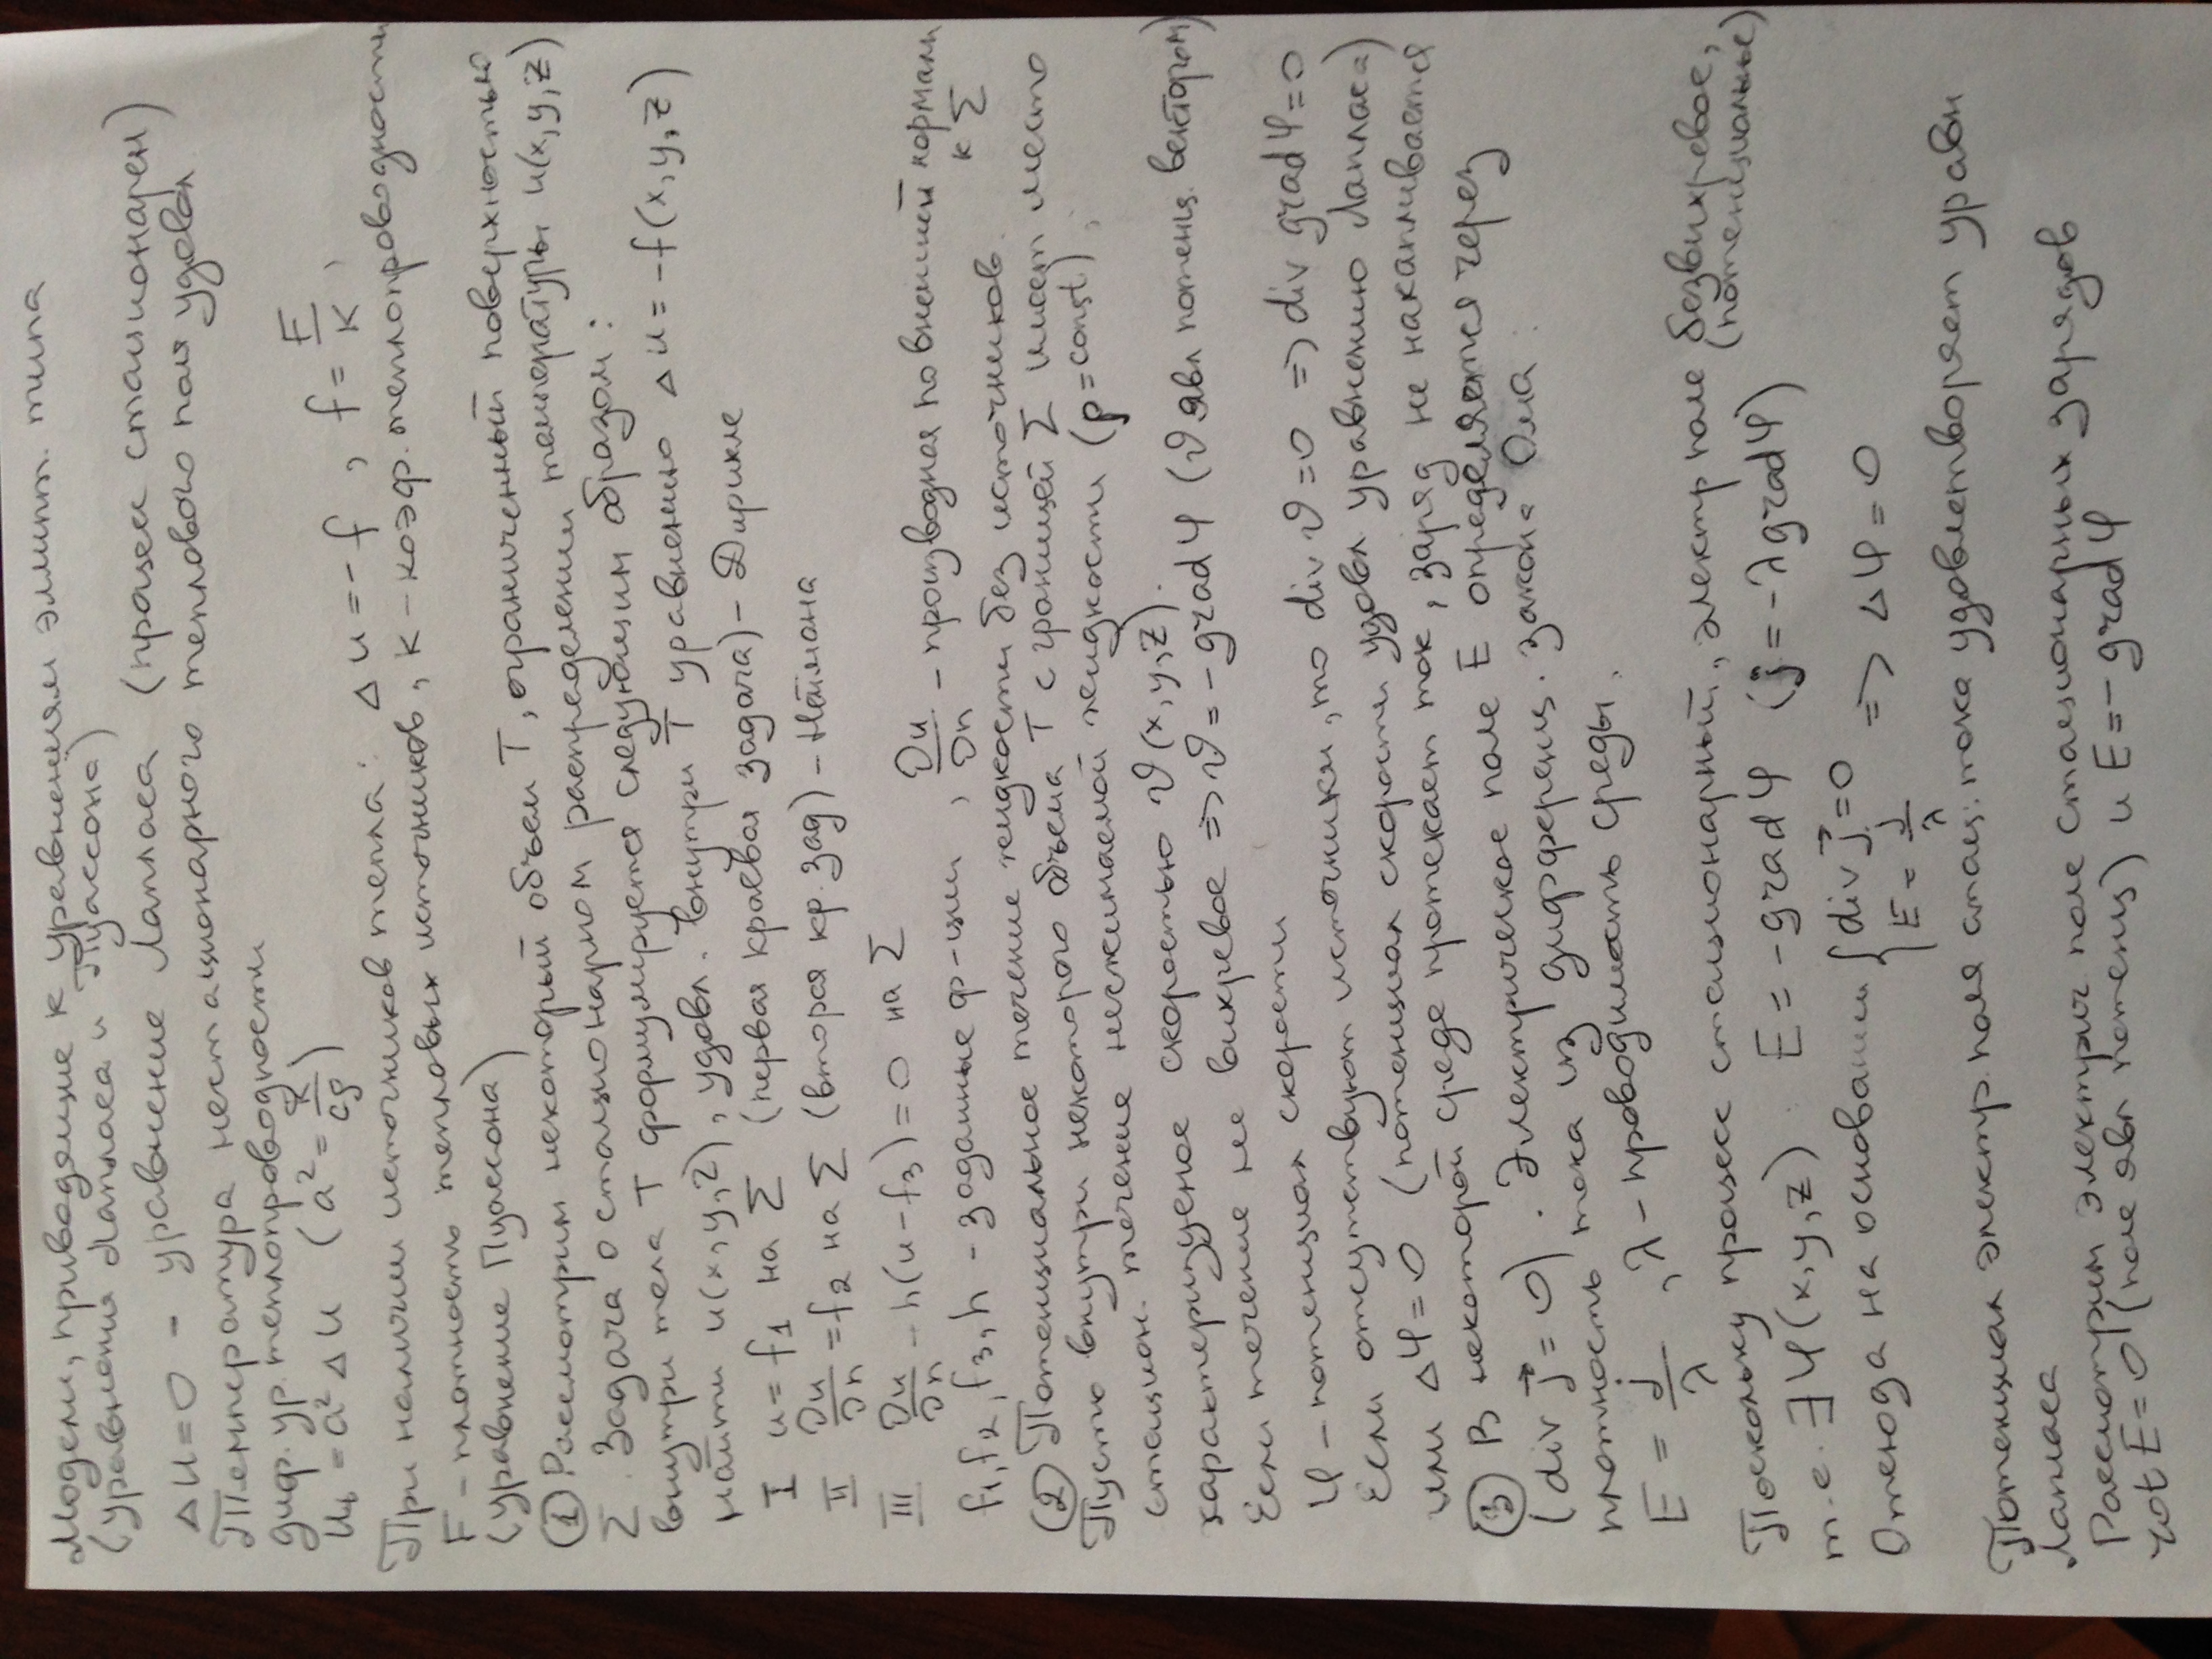 Модели, приводящие к уравнениям эллипт. типа
(уравнения Лапласа и Пуассона)
Δu=0 - уравнение Лапласа (процесс стационарен)
Температура нестационарного теплового поля удовл
диф. ур. теплопроводности
uₜ = a²Δu (a² = k/cρ)
При наличии источников тепла: Δu = -f, f = F/k,
F - плотность тепловых источников, k - коэф. теплопроводности
(уравнение Пуассона)
① Рассмотрим некоторый объем T, ограниченный поверхностью
Σ. Задача о стационарном распределении температуры u(x,y,z)
внутри тела T формулируется следующим образом:
Найти u(x,y,z), удовл. внутри T уравнению Δu = -f(x,y,z)
I u = f₁ на Σ (первая краевая задача) - Дирихле
II ∂u/∂n = f₂ на Σ (вторая кр. зад) - Неймана
III ∂u/∂n + h(u-f₃) = 0 на Σ
f₁, f₂, f₃, h - заданные ф-ции, ∂u/∂n - производная по внешней нормали к Σ
② Потенциальное течение жидкости без источников.
Пусть внутри некоторого объема T с границей Σ имеет место
стацион. течение несжимаемой жидкости (ρ=const),
характеризуемое скоростью ϑ(x,y,z).
Если течение не вихревое => ϑ = -grad φ (ϑ явл потенц. вектором)
φ - потенциал скорости
Если отсутствуют источники, то div ϑ = 0 => div grad φ = 0
или Δφ = 0 (потенциал скорости удовл уравнению Лапласа)
③ В некоторой среде протекает ток, заряд не накапливается
(div j⃗ = 0). Электрическое поле E определяется через
плотность тока из дифференц. закона Ома:
E = j/λ, λ - проводимость среды.
Поскольку процесс стационарный, электр поле безвихревое,
т.е. ∃ φ(x,y,z): E = -grad φ (j = -λ grad φ) (потенциальные)
Отсюда на основании { div j⃗ = 0 => Δφ = 0
E = j/λ
Потенциал электр. поля стац. тока удовлетворяет уравн
Лапласа
Рассмотрим электрич поле стационарных зарядов
rot E = 0 (поле явл потенц) и E = -grad φ